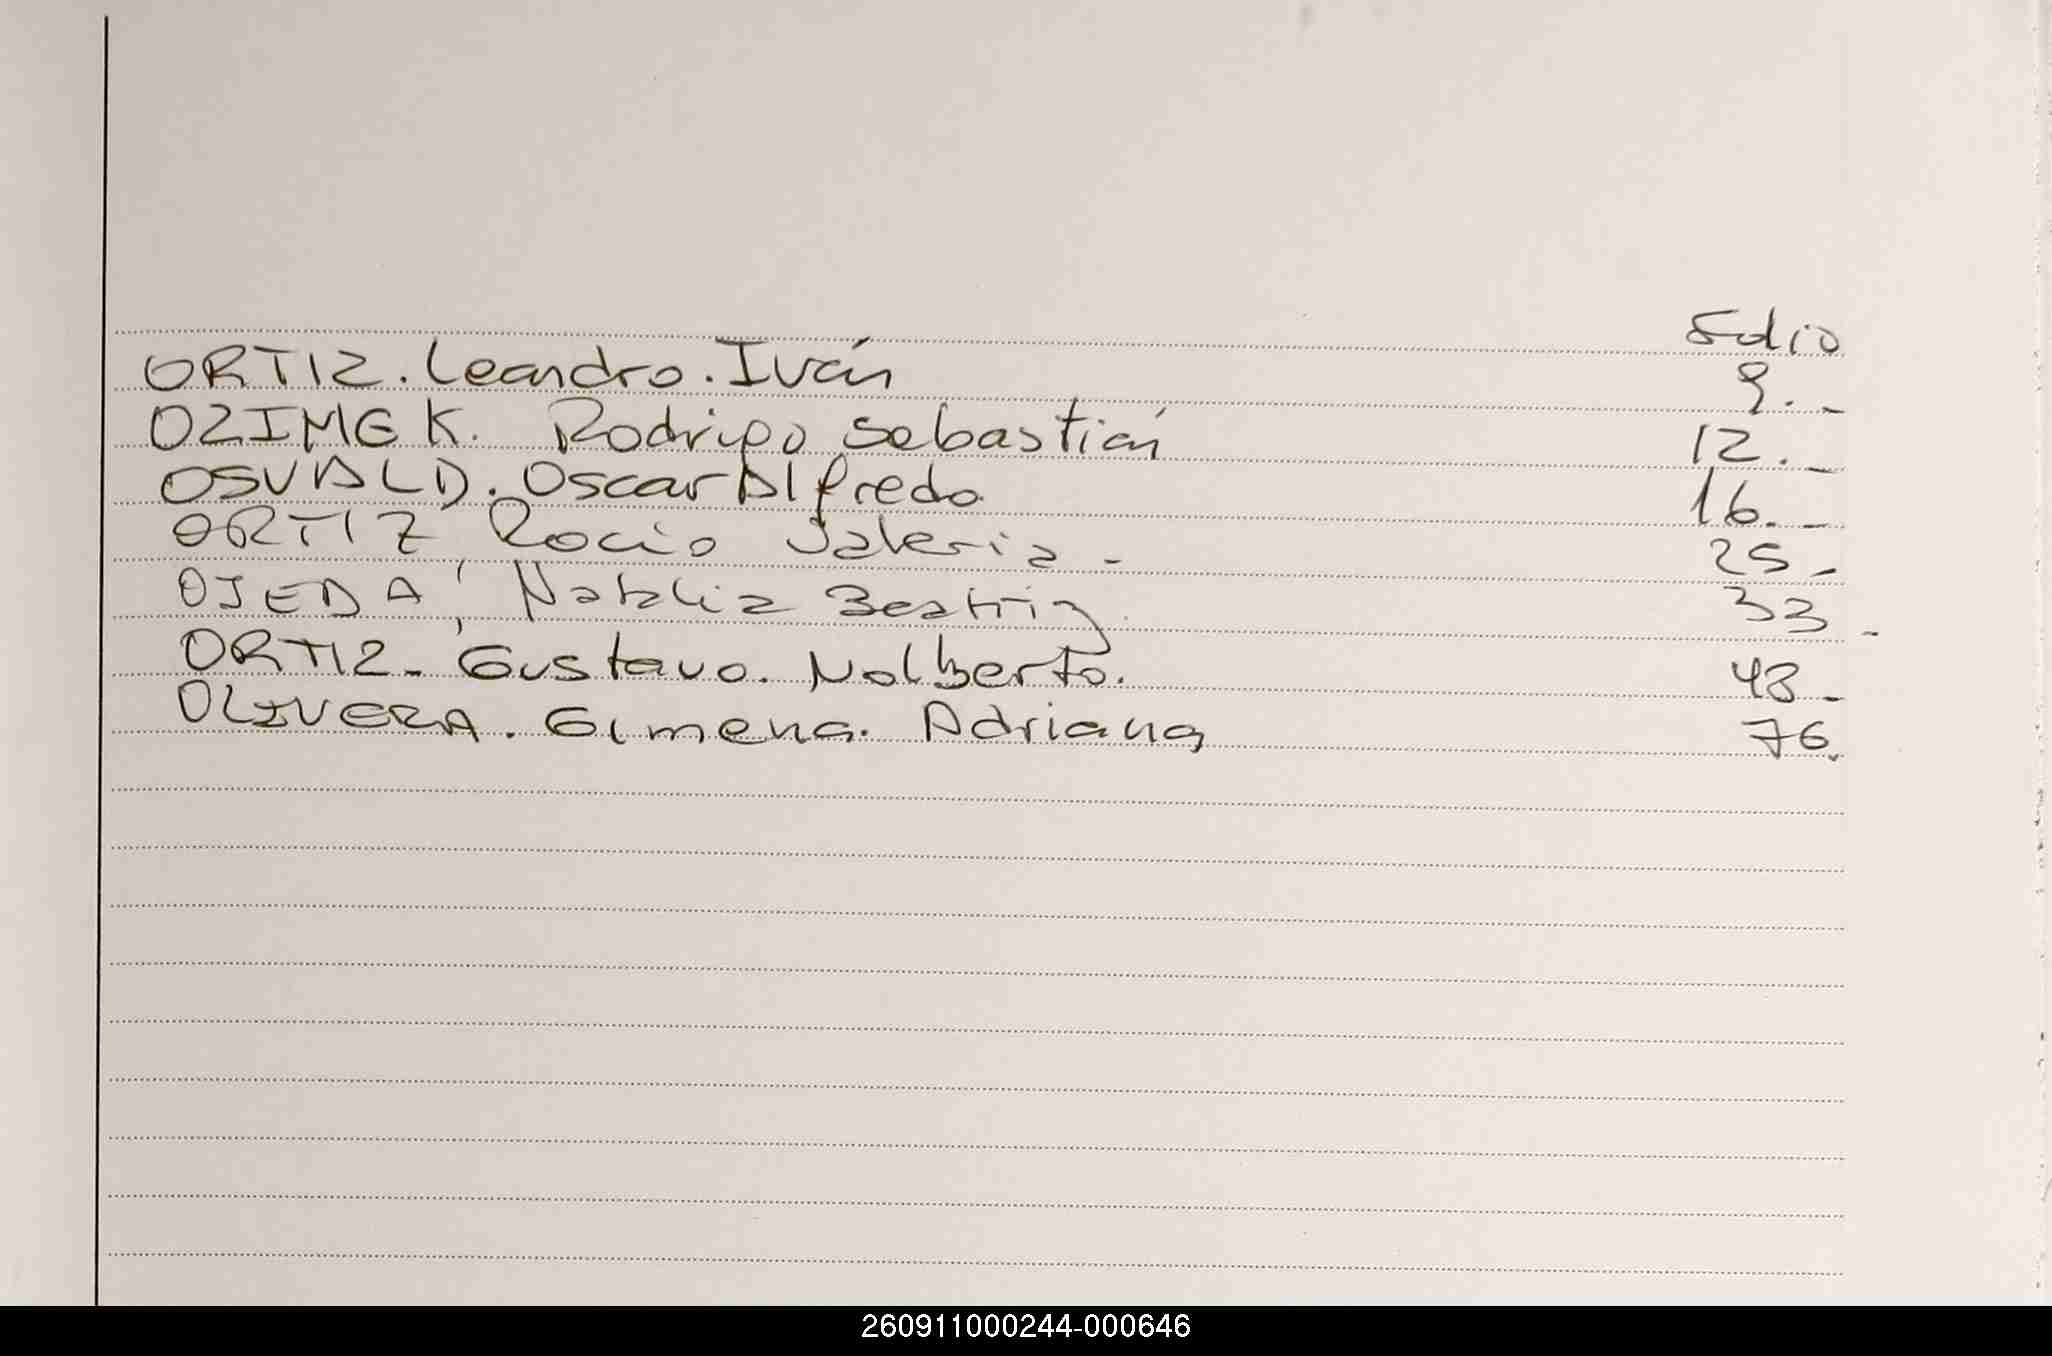 Folio
ORTIZ. Leandro. Iván 9.-
OZIMEK. Rodrigo Sebastián 12.-
OSVALD. Oscar Alfredo 16.-
ORTIZ, Rocio Valeria - 25.-
OJEDA, Natalia Beatriz 33.-
ORTIZ. Gustavo. Nolberto. 48.-
OLIVERA. Gimena. Adriana 76.
260911000244-000646